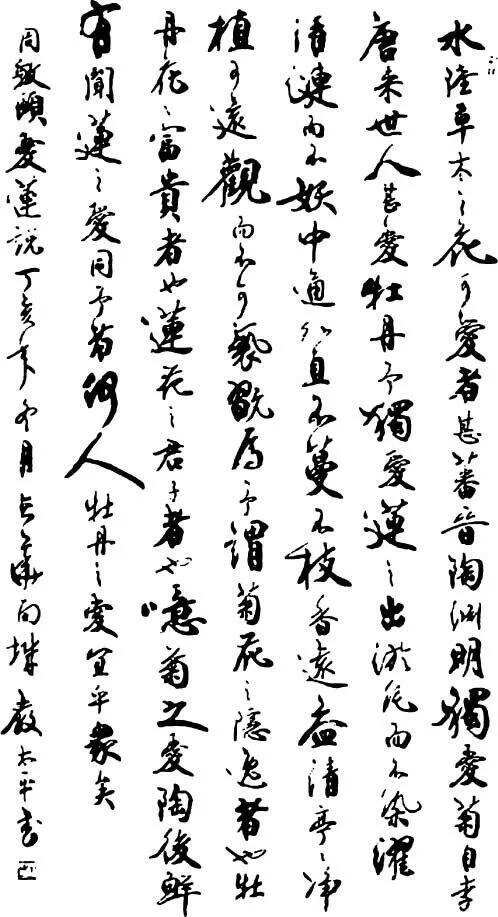 水陸草木之花可愛者甚蕃晉陶淵明獨愛菊自李
唐來世人甚愛牡丹予獨愛蓮之出淤泥而不染濯
清漣而不妖中通外直不蔓不枝香遠益清亭々淨
植可遠觀而不可褻翫焉予謂菊花之隱逸者也牡
丹花之富貴者也蓮花之君子者也噫菊之愛陶後鮮
有聞蓮之愛同予者何人牡丹之愛宜乎衆矣
周敦頤愛蓮説丁亥年冬月太平書